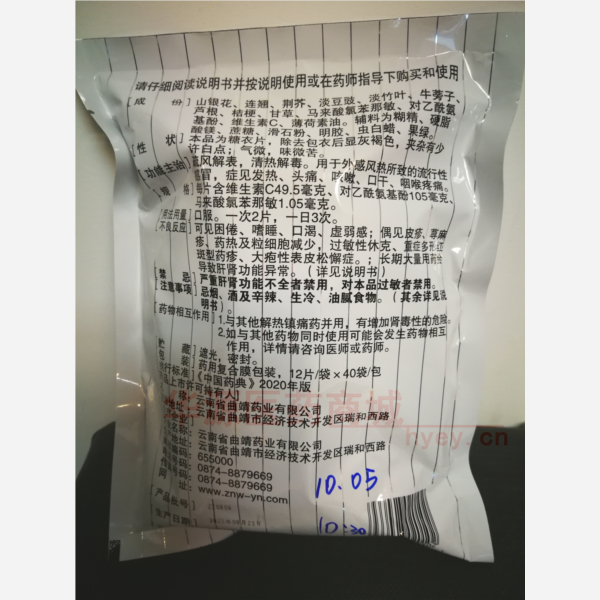 请仔细阅读说明书并按说明使用或在药师指导下购买和使用
[成 份] 山银花、连翘、荆芥、淡豆豉、淡竹叶、牛蒡子、
芦根、桔梗、甘草、马来酸氯苯那敏、对乙酰氨
基酚、维生素C、薄荷素油。辅料为糊精、硬脂
酸镁、蔗糖、滑石粉、明胶、虫白蜡、果绿。
[性 状] 本品为糖衣片，除去包衣后显灰褐色，夹杂有少
许白点；气微，味微苦。
功能主治] 疏风解表，清热解毒。用于外感风热所致的流行性
感冒，症见发热、头痛、咳嗽、口干、咽喉疼痛。
规 格] 每片含维生素C49.5毫克、对乙酰氨基酚105毫克、
马来酸氯苯那敏1.05毫克。
用法用量] 口服。一次2片，一日3次。
不良反应] 可见困倦、嗜睡、口渴、虚弱感；偶见皮疹、荨麻
疹、药热及粒细胞减少，过敏性休克、重症多形红
斑型药疹、大疱性表皮松懈症。；长期大量用药会
导致肝肾功能异常。（详见说明书）
禁 忌] 严重肝肾功能不全者禁用，对本品过敏者禁用。
注意事项] 忌烟、酒及辛辣、生冷、油腻食物。（其余详见说
明书）。
[药物相互作用] 1.与其他解热镇痛药并用，有增加肾毒性的危险。
2.如与其他药物同时使用可能会发生药物相互
作用，详情请咨询医师或药师。
贮 藏] 遮光，密封。
包 装] 药用复合膜包装，12片/袋×40袋/包
执行标准]《中国药典》2020年版
上市许可持有人]
云南省曲靖药业有限公司
地址: 云南省曲靖市经济技术开发区瑞和西路
企业]
名称: 云南省曲靖药业有限公司
地址: 云南省曲靖市经济技术开发区瑞和西路
655000
0874-8879669
0874-8879669
网 址: www.znw-yn.com
[产品批号]
生产日期]
10.05
10:30
医药商城
hyey.cn